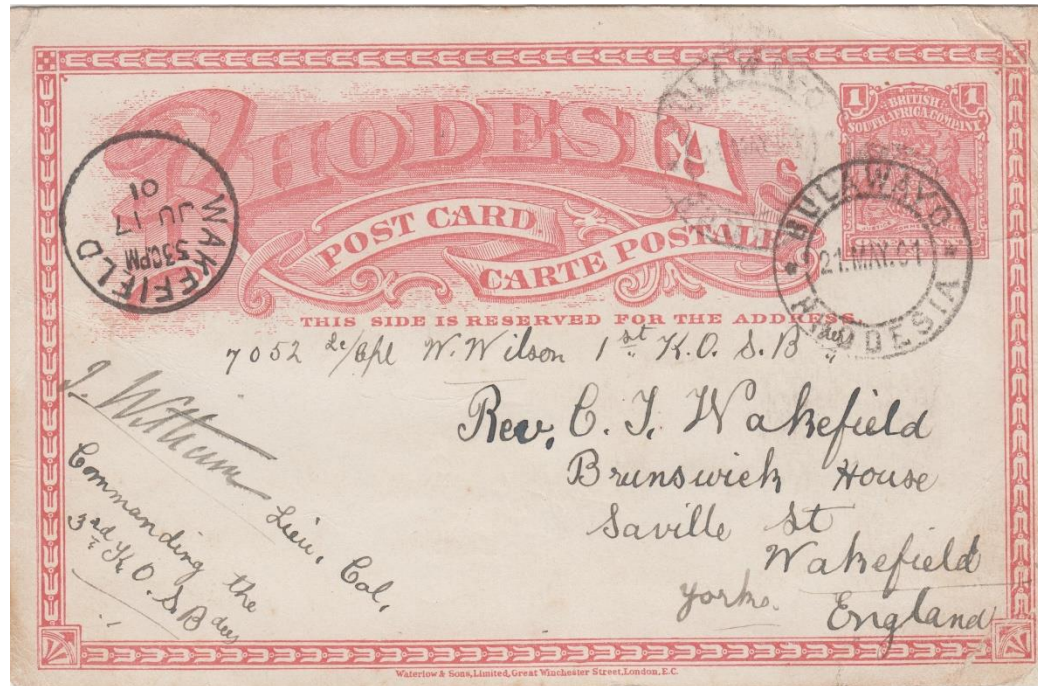 RHODESIA
POST CARD
CARTE POSTALE
THIS SIDE IS RESERVED FOR THE ADDRESS.
1 1
BRITISH
SOUTH AFRICA COMPANY
BULAWAYO
BULAWAYO
21.MAY.01
RHODESIA
WAKEFIELD
530PM
JU 17
01
7052 W. Wilson 1st K.O.S.B
Rev. C. J. Wakefield
Brunswick House
Saville St
Wakefield
Yorks.
England
J. Witham
Lieu. Col,
Commanding the
3rd K.O.S.B
Waterlow & Sons, Limited, Great Winchester Street, London, E.C.